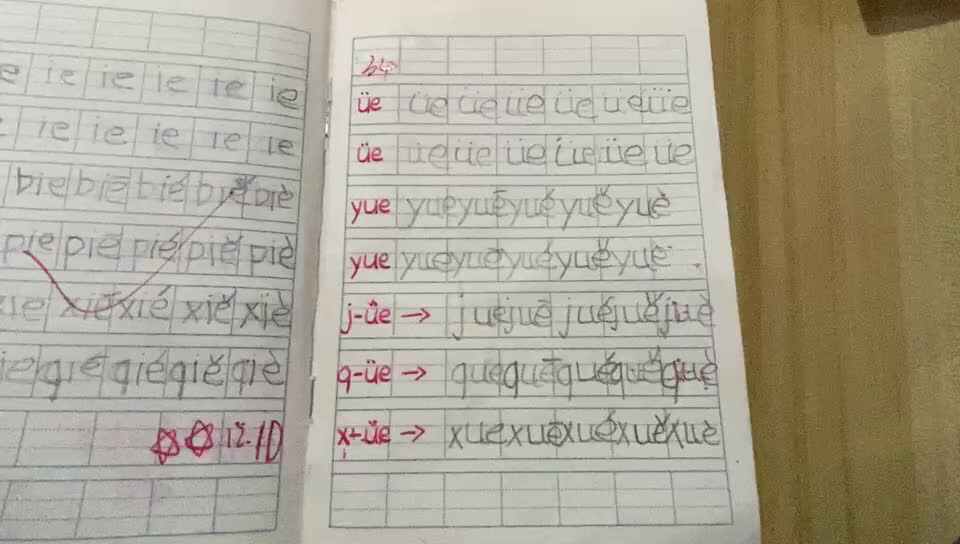 ie ie ie ie ie ie
ie ie ie ie ie
bie biē bié biě biè
pie piē pié piě piè
xiē xié xiě xiè
qiē qié qiě qiè
12.10
üe üe üe üe üe üe üe
üe üe üe üe üe üe üe
yue yue yuē yué yuě yuè
yue yue yuē yué yuě yuè
j-üe → jue juē jué juě juè
q-üe → que quē qué quě què
x-üe → xue xuē xué xuě xuè